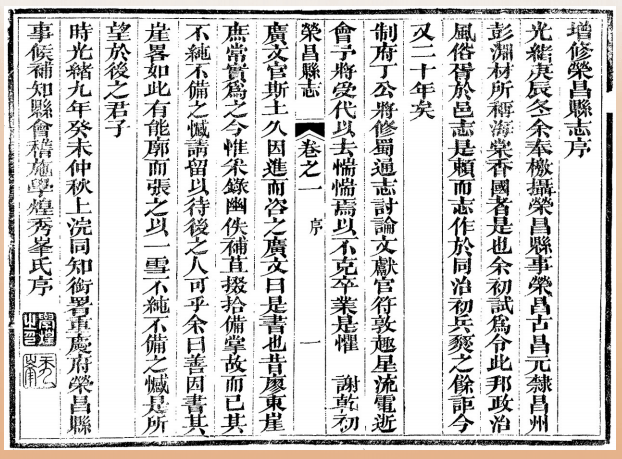 增修榮昌縣志序
光緒庚辰冬余奉檄攝榮昌縣事榮昌古昌元隸昌州
彭淵材所稱海棠香國者是也余初試爲令此邦政治
風俗胥於邑志是賴而志作於同治初兵燹之餘距今
又二十年矣
制府丁公將修蜀通志討論文獻官符敦趣星流電逝
會予將受代以去惴惴焉以不克卒業是懼 謝乾初
榮昌縣志 卷之一 序 一
廣文官斯土久因進而咨之廣文曰是書也昔廖東崖
庶常實爲之今惟采錄幽佚補苴掇拾備掌故而已其
不純不備之憾請留以待後之人可乎余曰善因書其
崖畧如此有能廓而張之以一雪不純不備之憾是所
望於後之君子
時光緒九年癸未仲秋上浣同知銜署重慶府榮昌縣
事候補知縣會稽施學煌秀峯氏序
學煌之印
秀峯